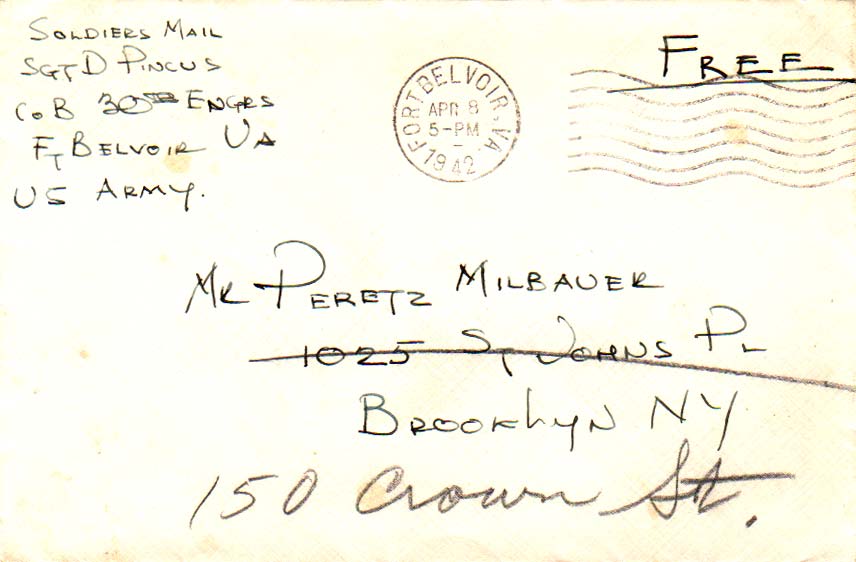 SOLDIERS MAIL
SGT D PINCUS
CO B 30TH ENGRS
FT BELVOIR VA
US ARMY.
FORT BELVOIR, VA
APR 8
5-PM
1942
FREE
MR PERETZ MILBAUER
1025 ST JOHNS PL
BROOKLYN NY
150 Crown St.